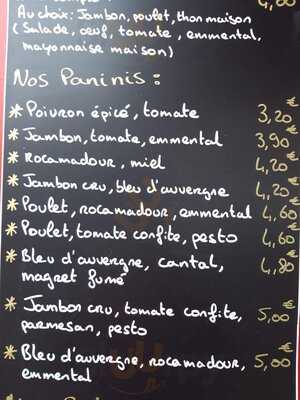 Au choix: Jambon, poulet, thon maison
(Salade, oeuf, tomate, emmental,
mayonnaise maison)
Nos Paninis:
* Poivron épicé, tomate 3,20€
* Jambon, tomate, emmental 3,90€
* Rocamadour, miel 4,20€
* Jambon cru, bleu d'auvergne 4,20€
* Poulet, rocamadour, emmental 4,60€
* Poulet, tomate confite, pesto 4,60€
* Bleu d'auvergne, cantal, 4,80€
magret fumé
* Jambon cru, tomate confite, 5,00€
parmesan, pesto
* Bleu d'auvergne, rocamadour, 5,00€
emmental